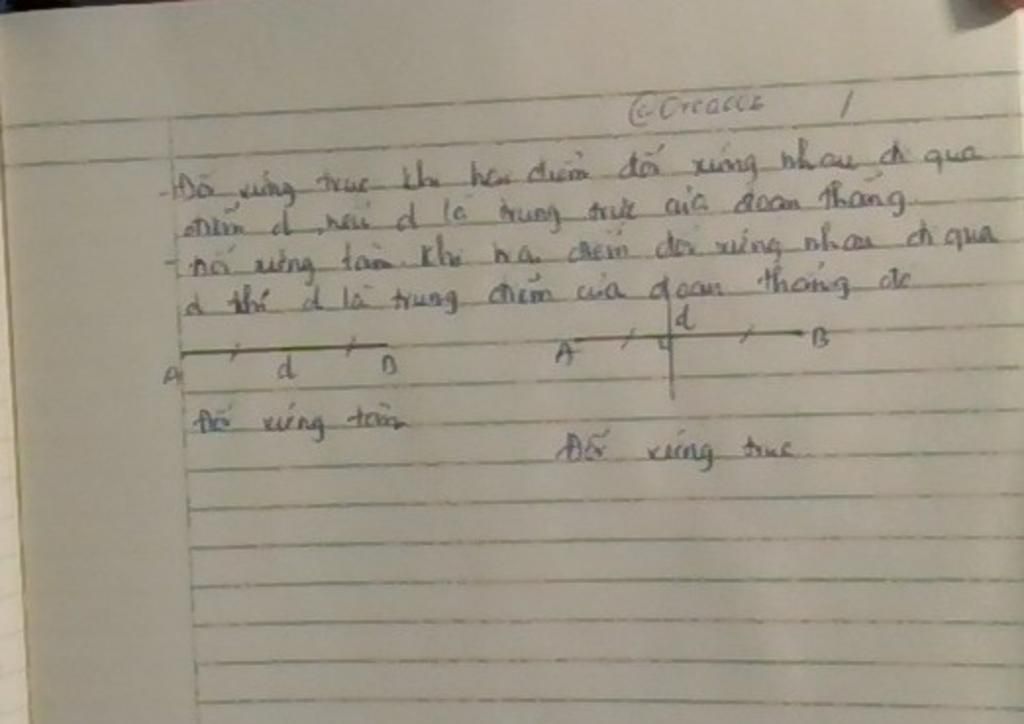 @Creacce /
- Đối xứng trục khi hai điểm đối xứng nhau qua
điểm d, nếu d là trung trực của đoan thẳng
- Đối xứng tâm khi hai điểm đối xứng nhau qua
d thì d là trung điểm của đoan thẳng đó
A d B
A d B
Đối xứng tâm
Đối xứng trục